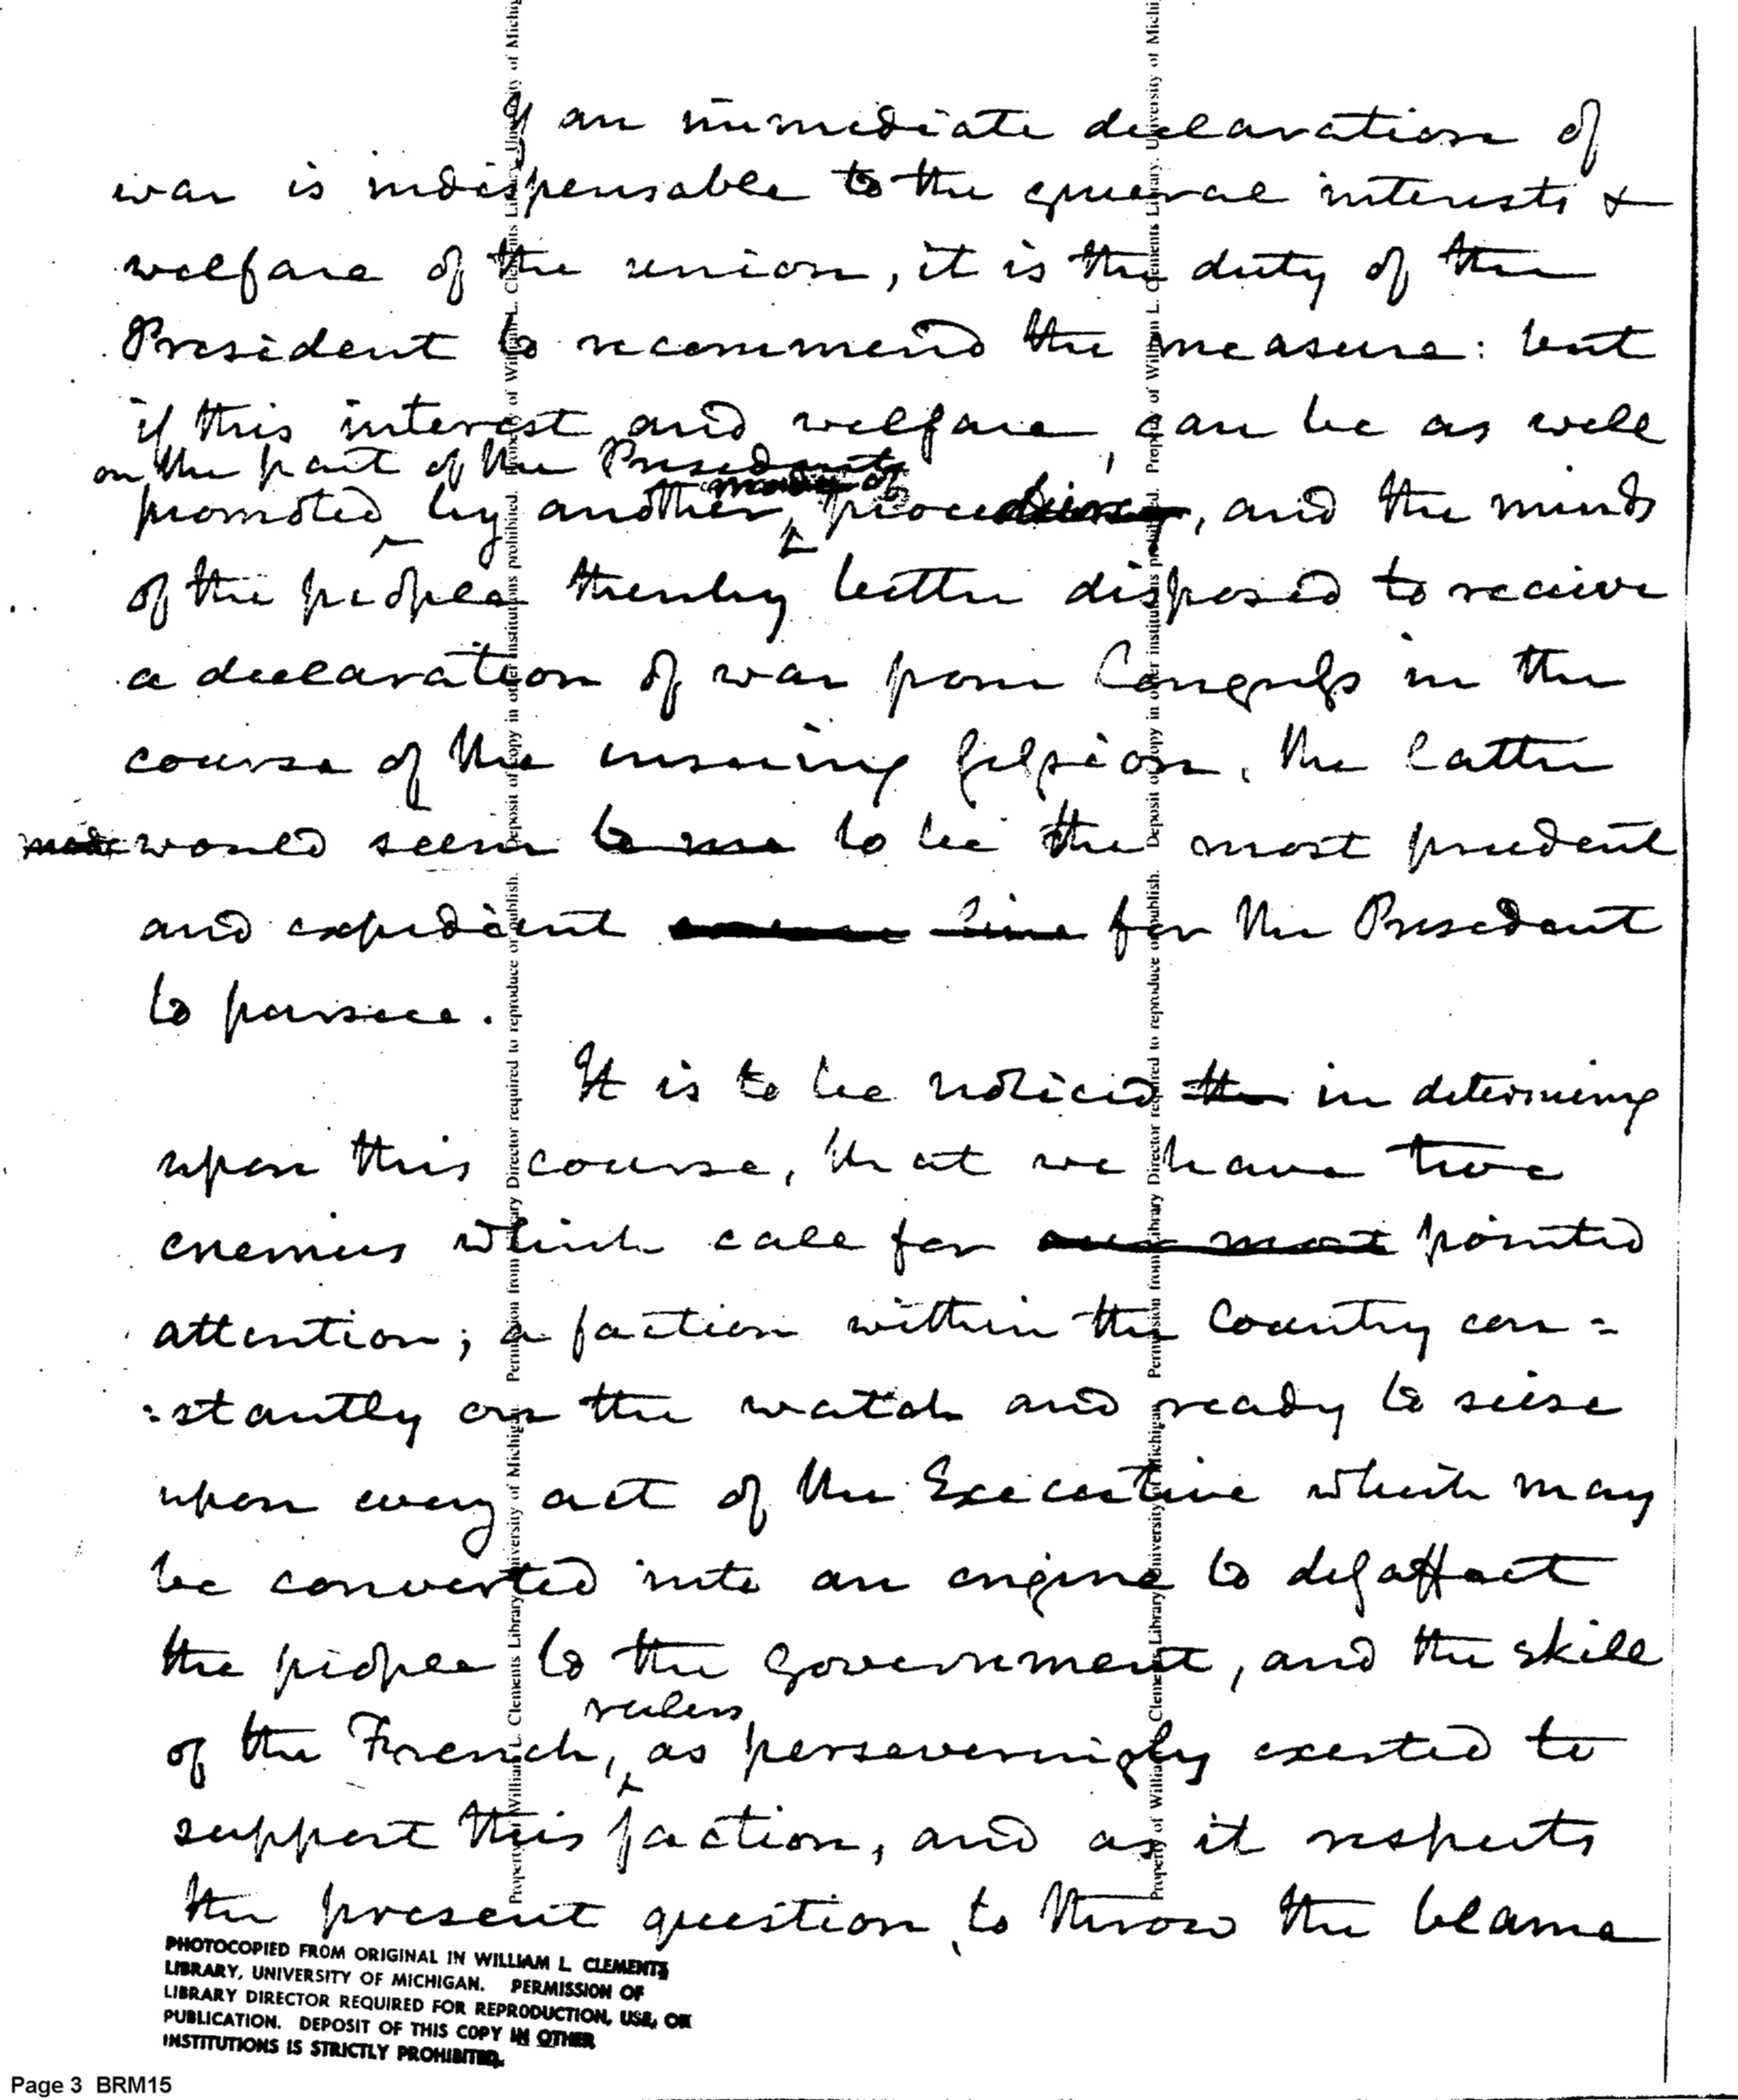 If an immediate declaration of
war is indispensable to the general interests &
welfare of the union, it is the duty of the
President to recommend the measure: but
if this interest and welfare, can be as well
on the part of the President
mode of
promoted by another proceeding, and the minds
of the people thereby better disposed to receive
a declaration of war from Congress in the
course of the ensuing session, the latter
mode would seem to me to be the most prudent
and expedient course line for the President
to pursue.
It is to be noticed the in determining
upon this course, that we have two
enemies which call for our most pointed
attention; a faction within the Country con=
=stantly on the watch and ready to seise
upon every act of the Executive which may
be converted into an engine to disaffect
the people to the government, and the skill
rulers
of the French, as perseveringly exerted to
support this faction, and as it respects
the present question, to throw the blame
PHOTOCOPIED FROM ORIGINAL IN WILLIAM L. CLEMENTS
LIBRARY, UNIVERSITY OF MICHIGAN. PERMISSION OF
LIBRARY DIRECTOR REQUIRED FOR REPRODUCTION, USE, OR
PUBLICATION. DEPOSIT OF THIS COPY IN OTHER
INSTITUTIONS IS STRICTLY PROHIBITED.
Page 3 BRM15
Property of William L. Clements Library, University of Michigan. Permission from Library Director required to reproduce or publish. Deposit of copy in other institutions prohibited. Property of William L. Clements Library, University of Michi
Property of William L. Clements Library, University of Michigan. Permission from Library Director required to reproduce or publish. Deposit of copy in other institutions prohibited. Property of William L. Clements Library, University of Michi